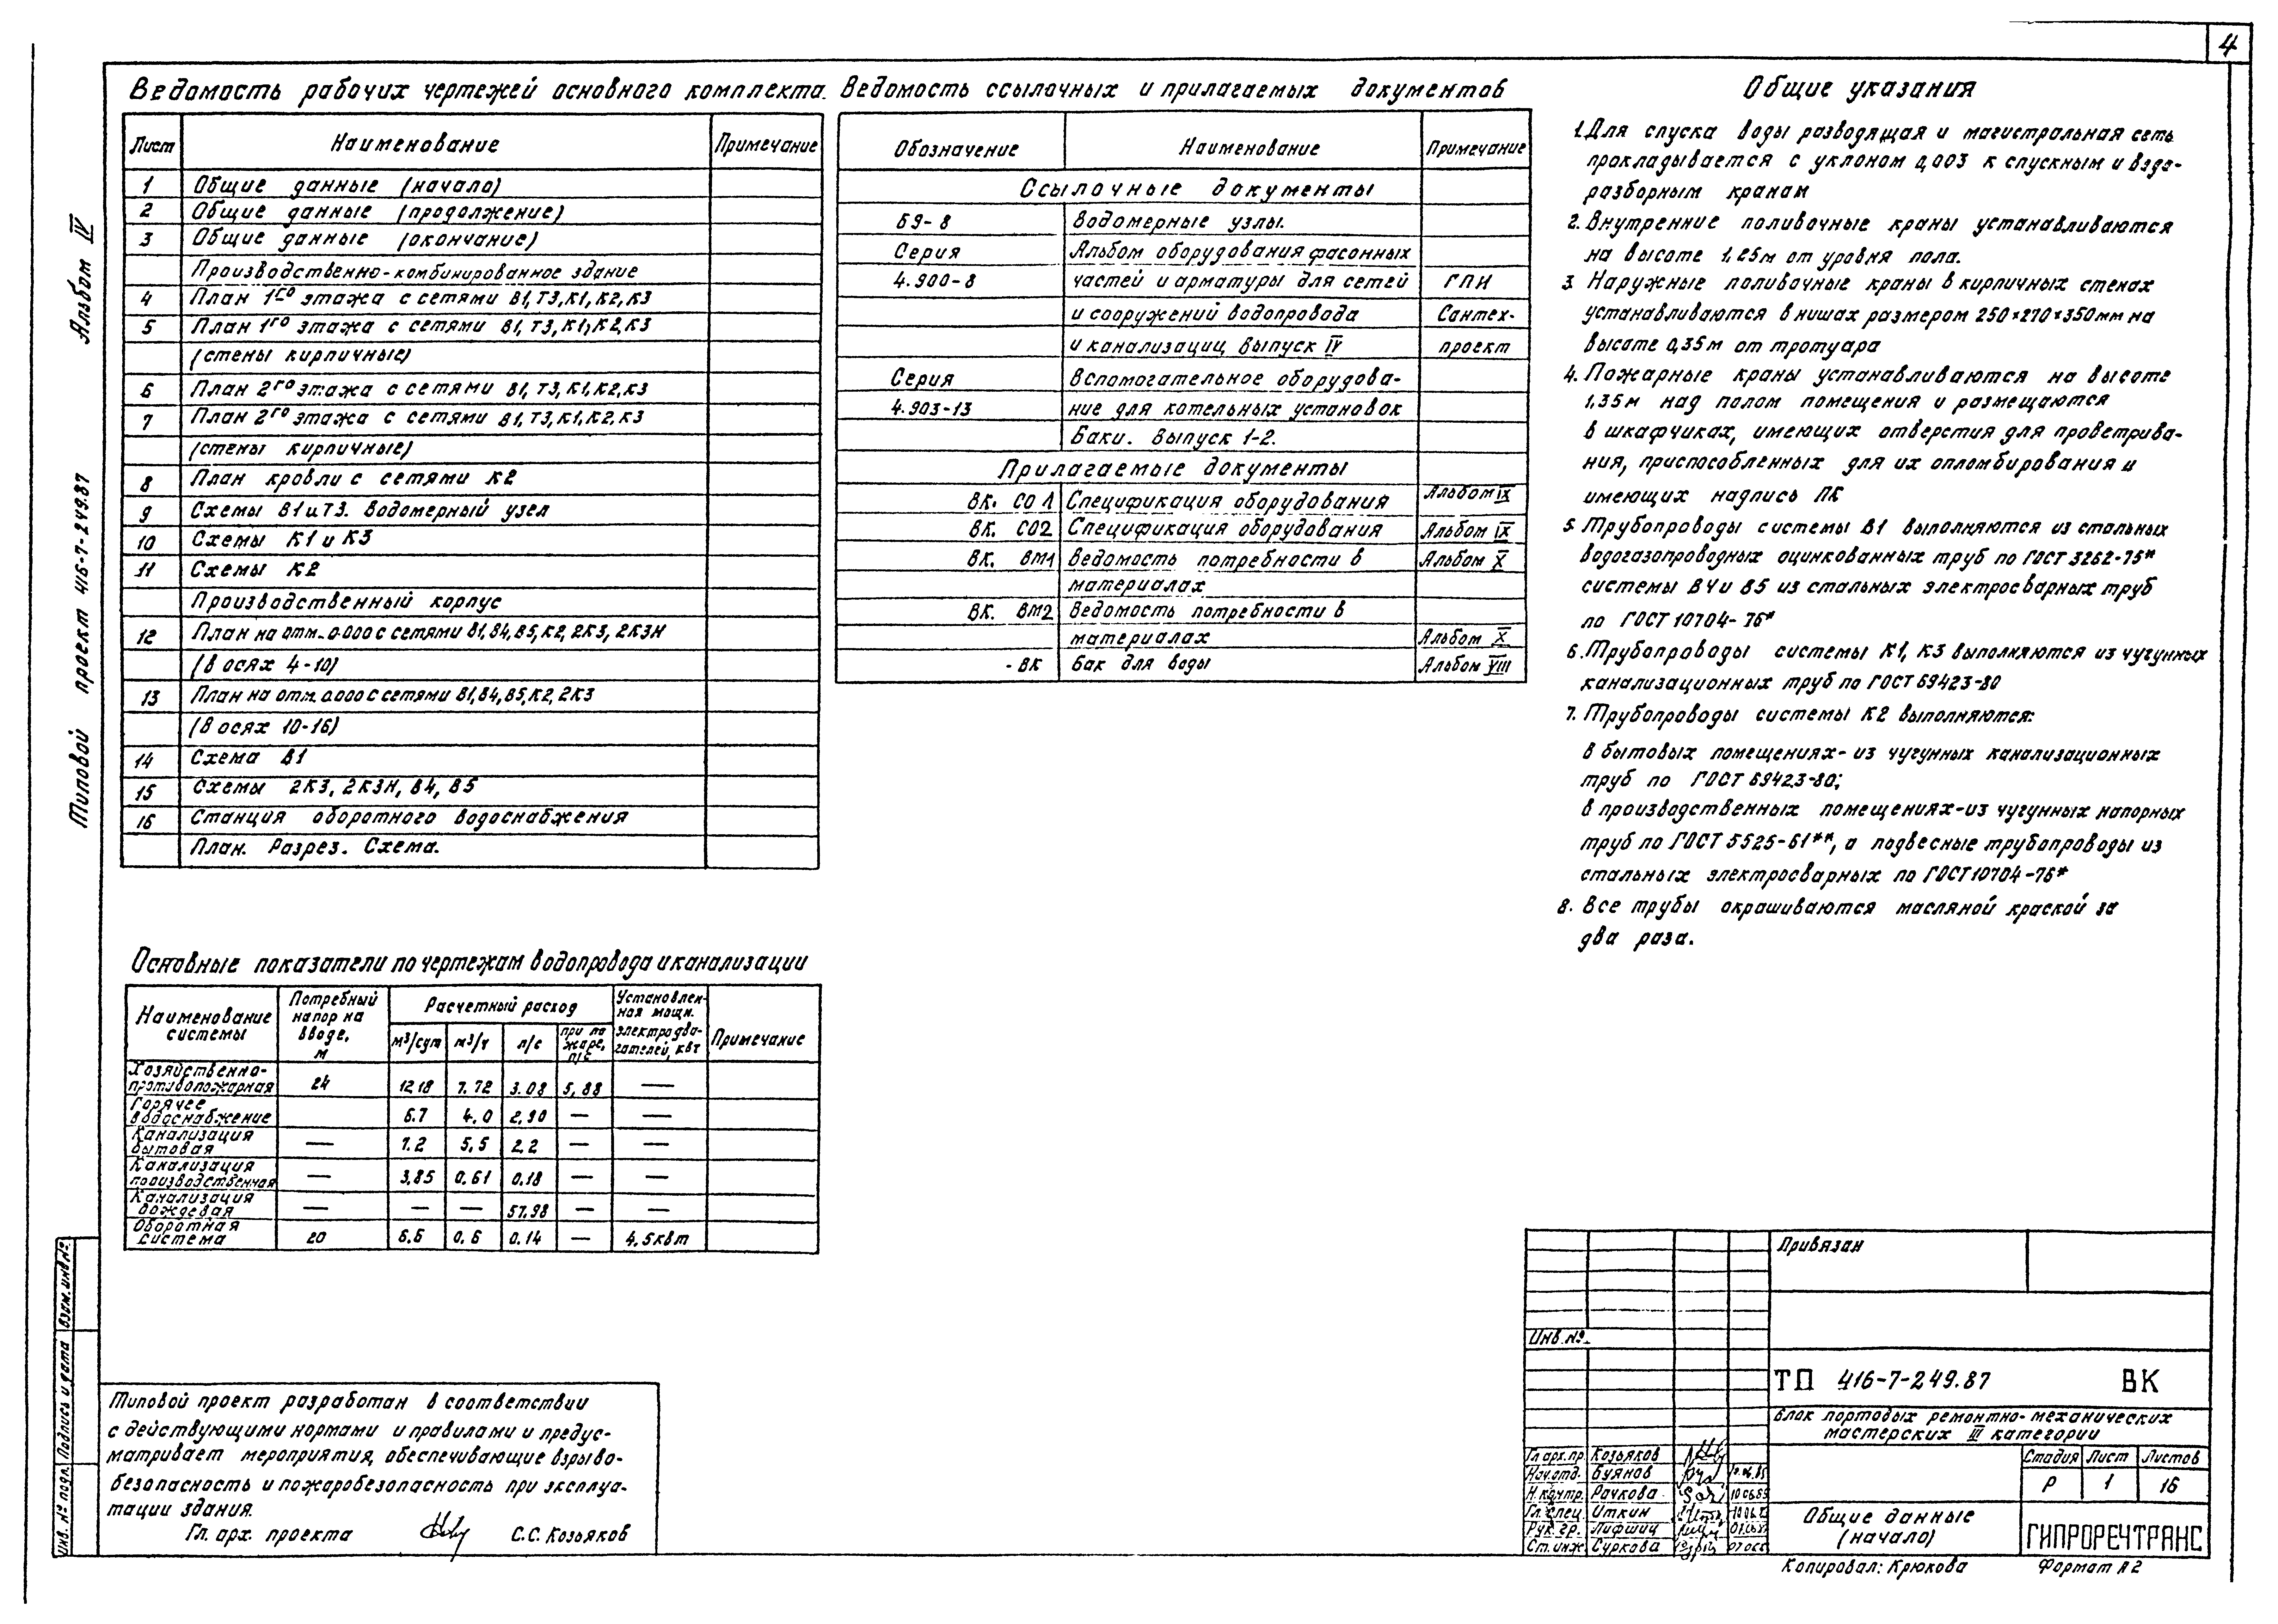 4
Альбом IV
Типовой проект 416-7-249.87
Ведомость рабочих чертежей основного комплекта.
Лист Наименование Примечание
1 Общие данные (начало)
2 Общие данные (продолжение)
3 Общие данные (окончание)
Производственно-комбинированное здание
4 План 1го этажа с сетями В1, Т3, К1, К2, К3
5 План 1го этажа с сетями В1, Т3, К1, К2, К3
(стены кирпичные)
6 План 2го этажа с сетями В1, Т3, К1, К2, К3
7 План 2го этажа с сетями В1, Т3, К1, К2, К3
(стены кирпичные)
8 План кровли с сетями К2
9 Схемы В1 и Т3. Водомерный узел
10 Схемы К1 и К3
11 Схемы К2
Производственный корпус
12 План на отм. 0.000 с сетями В1, В4, В5, К2, 2К3, 2К3Н
(в осях 4-10)
13 План на отм. 0.000 с сетями В1, В4, В5, К2, 2К3
(в осях 10-16)
14 Схема В1
15 Схемы 2К3, 2К3Н, В4, В5
16 Станция оборотного водоснабжения
План. Разрез. Схема.
Ведомость ссылочных и прилагаемых документов
Обозначение Наименование Примечание
Ссылочные документы
Б9-8 Водомерные узлы.
Серия Альбом оборудования фасонных
4.900-8 частей и арматуры для сетей ГПИ
и сооружений водопровода Сантех-
и канализации выпуск IV проект
Серия Вспомогательное оборудова-
4.903-13 ние для котельных установок
Баки. Выпуск 1-2.
Прилагаемые документы
ВК. СО1 Спецификация оборудования Альбом IX
ВК. СО2 Спецификация оборудования Альбом IX
ВК. ВМ1 Ведомость потребности в Альбом X
материалах
ВК. ВМ2 Ведомость потребности в
материалах Альбом X
-ВК Бак для воды Альбом VIII
Общие указания
1. Для спуска воды разводящая и магистральная сеть
прокладывается с уклоном 0,003 к спускным и водо-
разборным кранам
2. Внутренние поливочные краны устанавливаются
на высоте 1,25м от уровня пола.
3. Наружные поливочные краны в кирпичных стенах
устанавливаются в нишах размером 250×270×350мм на
высоте 0,35м от тротуара
4. Пожарные краны устанавливаются на высоте
1,35м над полом помещения и размещаются
в шкафчиках, имеющих отверстия для проветрива-
ния, приспособленных для их опломбирования и
имеющих надпись ПК
5. Трубопроводы системы В1 выполняются из стальных
водогазопроводных оцинкованных труб по ГОСТ 3262-75*
системы В4 и В5 из стальных электросварных труб
по ГОСТ 10704-76*
6. Трубопроводы системы К1, К3 выполняются из чугунных
канализационных труб по ГОСТ 6942.3-80
7. Трубопроводы системы К2 выполняются:
в бытовых помещениях- из чугунных канализационных
труб по ГОСТ 6942.3-80;
в производственных помещениях-из чугунных напорных
труб по ГОСТ 5525-61**, а подвесные трубопроводы из
стальных электросварных по ГОСТ 10704-76*
8. Все трубы окрашиваются масляной краской за
два раза.
Основные показатели по чертежам водопровода и канализации
Наименование системы Потребный напор на вводе, м Расчетный расход Установлен- ная мощн. электродви- гателей, квт Примечание
м³/сут м³/ч л/с при по жаре, л/с
Хозяйственно-
противопожарная 24 12.18 7.72 3.08 5,88 —
Горячее
водоснабжение 6.7 4.0 2,90 — —
Канализация
бытовая — 7.2 5,5 2,2 — —
Канализация
производственная — 3,85 0,61 0.18 — —
Канализация
дождевая — — — 57.98 — —
Оборотная
система 20 6.6 0,6 0.14 — 4,5квт
Типовой проект разработан в соответствии
с действующими нормами и правилами и предус-
матривает мероприятия, обеспечивающие взрыво-
безопасность и пожаробезопасность при эксплуа-
тации здания.
Гл. арх. проекта С.С. Козьяков
Инв. № подл. Подпись и дата Взам. инв. №
Привязан
Инв. №
ТП 416-7-249.87 ВК
Блок портовых ремонтно-механических
мастерских III категории
Стадия Лист Листов
Р 1 16
Гл. арх. пр. Козьяков
Нач. отд. Буянов
Н. контр. Рачкова
Гл. спец. Иткин
Рук. гр. Лифшиц
Ст. инж. Суркова
Общие данные
(начало)
ГИПРОРЕЧТРАНС
Копировал: Крюкова Формат А2